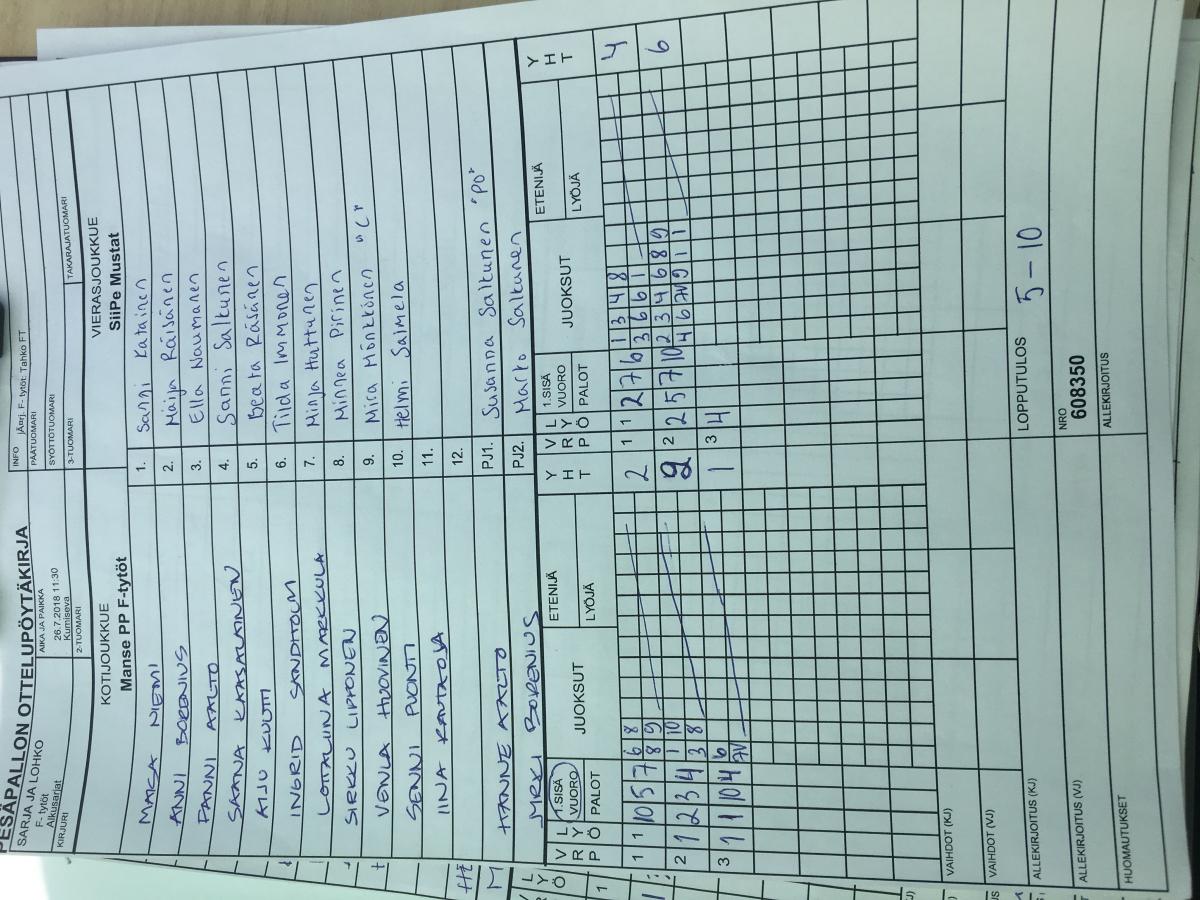 PESÄPALLON OTTELUPÖYTÄKIRJA
SARJA JA LOHKO
F- tytöt
Alkusarjat
AIKA JA PAIKKA
26.7.2018 11:30
Kumiseva
INFO
F- tytöt: Tahko FT
PÄÄTUOMARI
SYÖTTÖTUOMARI
KIRJURI
2-TUOMARI
3-TUOMARI
TAKARAJATUOMARI
KOTIJOUKKUE
Manse PP F-tytöt
VIERASJOUKKUE
SiiPe Mustat
MAISA NIEMI 1. Sanni Katainen
ANNI BORENIUS 2. Maija Räisänen
PANNI AALTO 3. Ella Naumanen
SAANA KAASALAINEN 4. Sanni Salkunen
AIJU KUUTTI 5. Beata Räsänen
INGRID SANDHOLM 6. Tilda Immonen
LOTTALIINA MARKKULA 7. Minja Huttunen
SIRKKU LIPPONEN 8. Minnea Pirinen
VENLA HUOVINEN 9. Mira Mönkkönen "C"
SENNI PUONTI 10. Helmi Salmela
IINA RAUTAOJA 11.
12.
HANNE AALTO PJ1. Susanna Salkunen "PO"
BORENIUS PJ2. Marko Salkunen
VRP LYÖ 1.SISÄ VUORO PALOT JUOKSUT ETENIJÄ LYÖJÄ YHT VRP LYÖ 1.SISÄ VUORO PALOT JUOKSUT ETENIJÄ LYÖJÄ YHT
1 1 10 5 7 6 8 2 1 1 2 7 6 1 3 4 8 4
8 9 3 6 6 1
2 1 2 3 4 1 10 2 2 2 5 7 10 2 3 4 6 8 9 6
3 8 4 6 AV 9 1 1
3 1 1 10 4 6 1 3 4
AV
VAIHDOT (KJ)
VAIHDOT (VJ)
ALLEKIRJOITUS (KJ)
LOPPUTULOS 5 - 10
ALLEKIRJOITUS (VJ)
NRO
608350
HUOMAUTUKSET
ALLEKIRJOITUS